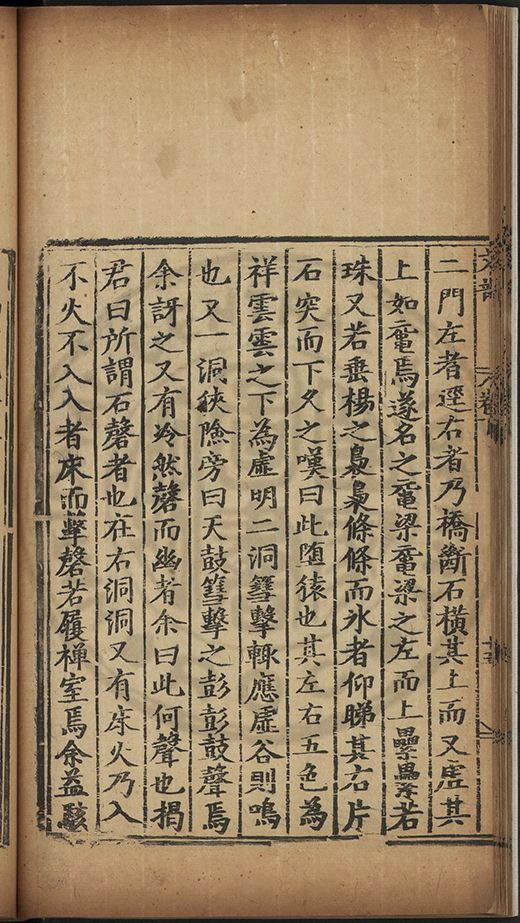 二門左者逕右者乃橋斷石橫其上而又虛其
上如黿焉遂名之黿梁黿梁之左而上纍纍若
珠又若垂楊之裊裊條條而氷者仰睇其右片
石突而下久之嘆曰此堕猿也其左右五色為
祥雲雲之下為虛明二洞篲擊輙應虛谷則鳴
也又一洞狹險旁曰天鼓篲擊之彭彭鼓聲焉
余訝之又有冷然磬而幽者余曰此何聲也揭
君曰所謂石磬者也在右洞洞又有床火乃入
不火不入入者床而擊磬若履禅室焉余益駭